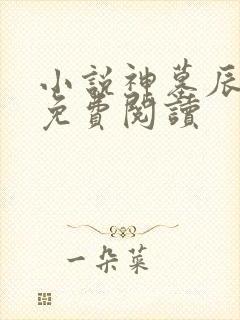 小説神墓辰
免費閱讀
一朵菜